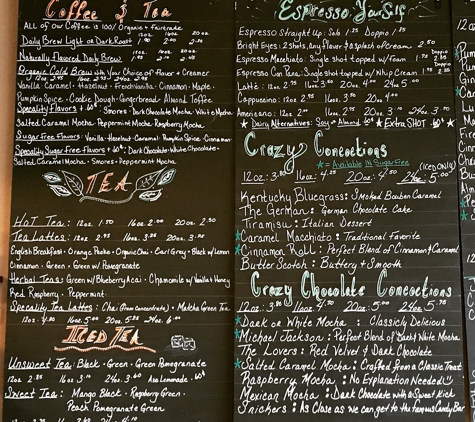 Coffee & Tea
ALL of Our Coffee is 100% Organic + Fairtrade
12oz 16oz 20oz
Daily Brew Light or Dark Roast
Naturally Flavored Daily Brew
Organic Cold Brew with Your Choice of Flavor + Creamer
Vanilla · Caramel · Hazelnut · French Vanilla · Cinnamon · Maple ·
Pumpkin Spice · Cookie Dough · Gingerbread · Almond Toffee
Speciality Flavors + .60¢ : Smores · Dark Chocolate Mocha · White Mocha
Salted Caramel Mocha · Peppermint Mocha · Raspberry Mocha
Sugar Free Flavors : Vanilla · Hazelnut · Caramel · Pumpkin Spice · Cinnamon
Speciality Sugar Free Flavors + .60¢ : Dark Chocolate · White Chocolate ·
Salted Caramel Mocha · Smores · Peppermint Mocha
TEA
Hot Tea : 12oz 1.50 16oz 2.00 20oz 2.50
Tea Lattes : 12oz 2.95 16oz 3.25 20oz
English Breakfast · Orange Pekoe · Organic Chai · Earl Grey · Black w/ Lemon
Cinnamon · Green · Green w/ Pomegranate
Herbal Teas : Green w/ Blueberry Acai · Chamomile w/ Vanilla + Honey
Red Raspberry · Peppermint
Speciality Tea Lattes : Chai (From Concentrate) · Matcha Green Tea
Iced Tea
Unsweet Tea : Black · Green · Green Pomegranate
12oz 2.85 16oz 3.10 24oz 3.60 Add Lemonade .60¢
Sweet Tea : Mango Black · Raspberry Green ·
Peach Pomegranate Green
Espresso Yourself
Espresso Straight Up : Solo 1.25 Doppio 1.75
Bright Eyes : 2 Shots, Any Flavor & a splash of Cream 2.50
Espresso Macchiato : Single Shot topped w/ Foam
Espresso Con Pana : Single Shot topped w/ Whip Cream
Latte : 12oz 2.95 16oz 3.50 20oz 4.00 24oz 5.00
Cappuccino : 12oz 2.95 16oz 3.50 20oz 4.00
Americano : 12oz 2.00 16oz 20oz 24oz
★ Dairy Alternatives : Soy or Almond .60¢ ★ Extra SHOT .60¢ ★
Crazy Concoctions
★ = Available IN Sugar Free
(ICED ONLY)
12oz : 3.75 16oz : 4.25 20oz : 4.50 24oz : 5.00
Kentucky Bluegrass : Smoked Bourbon Caramel
The German : German Chocolate Cake
Tiramisu : Italian Dessert
★ Caramel Macchiato : Traditional Favorite
★ Cinnamon Roll : Perfect Blend of Cinnamon & Caramel
Butter Scotch : Buttery + Smooth
Crazy Chocolate Concoctions
20oz : 5.00 24oz 5.75
★ Dark or White Mocha : Classicly Delicious
Michael Jackson : Perfect Blend of Dark & White Mocha
The Lovers : Red Velvet & Dark Chocolate
★ Salted Caramel Mocha : Crafted from a Classic Toast
Raspberry Mocha : No Explanation Needed
Mexican Mocha : Dark Chocolate with a Sweet Kick
Snickers : As Close as we can get to the famous Candy Bar